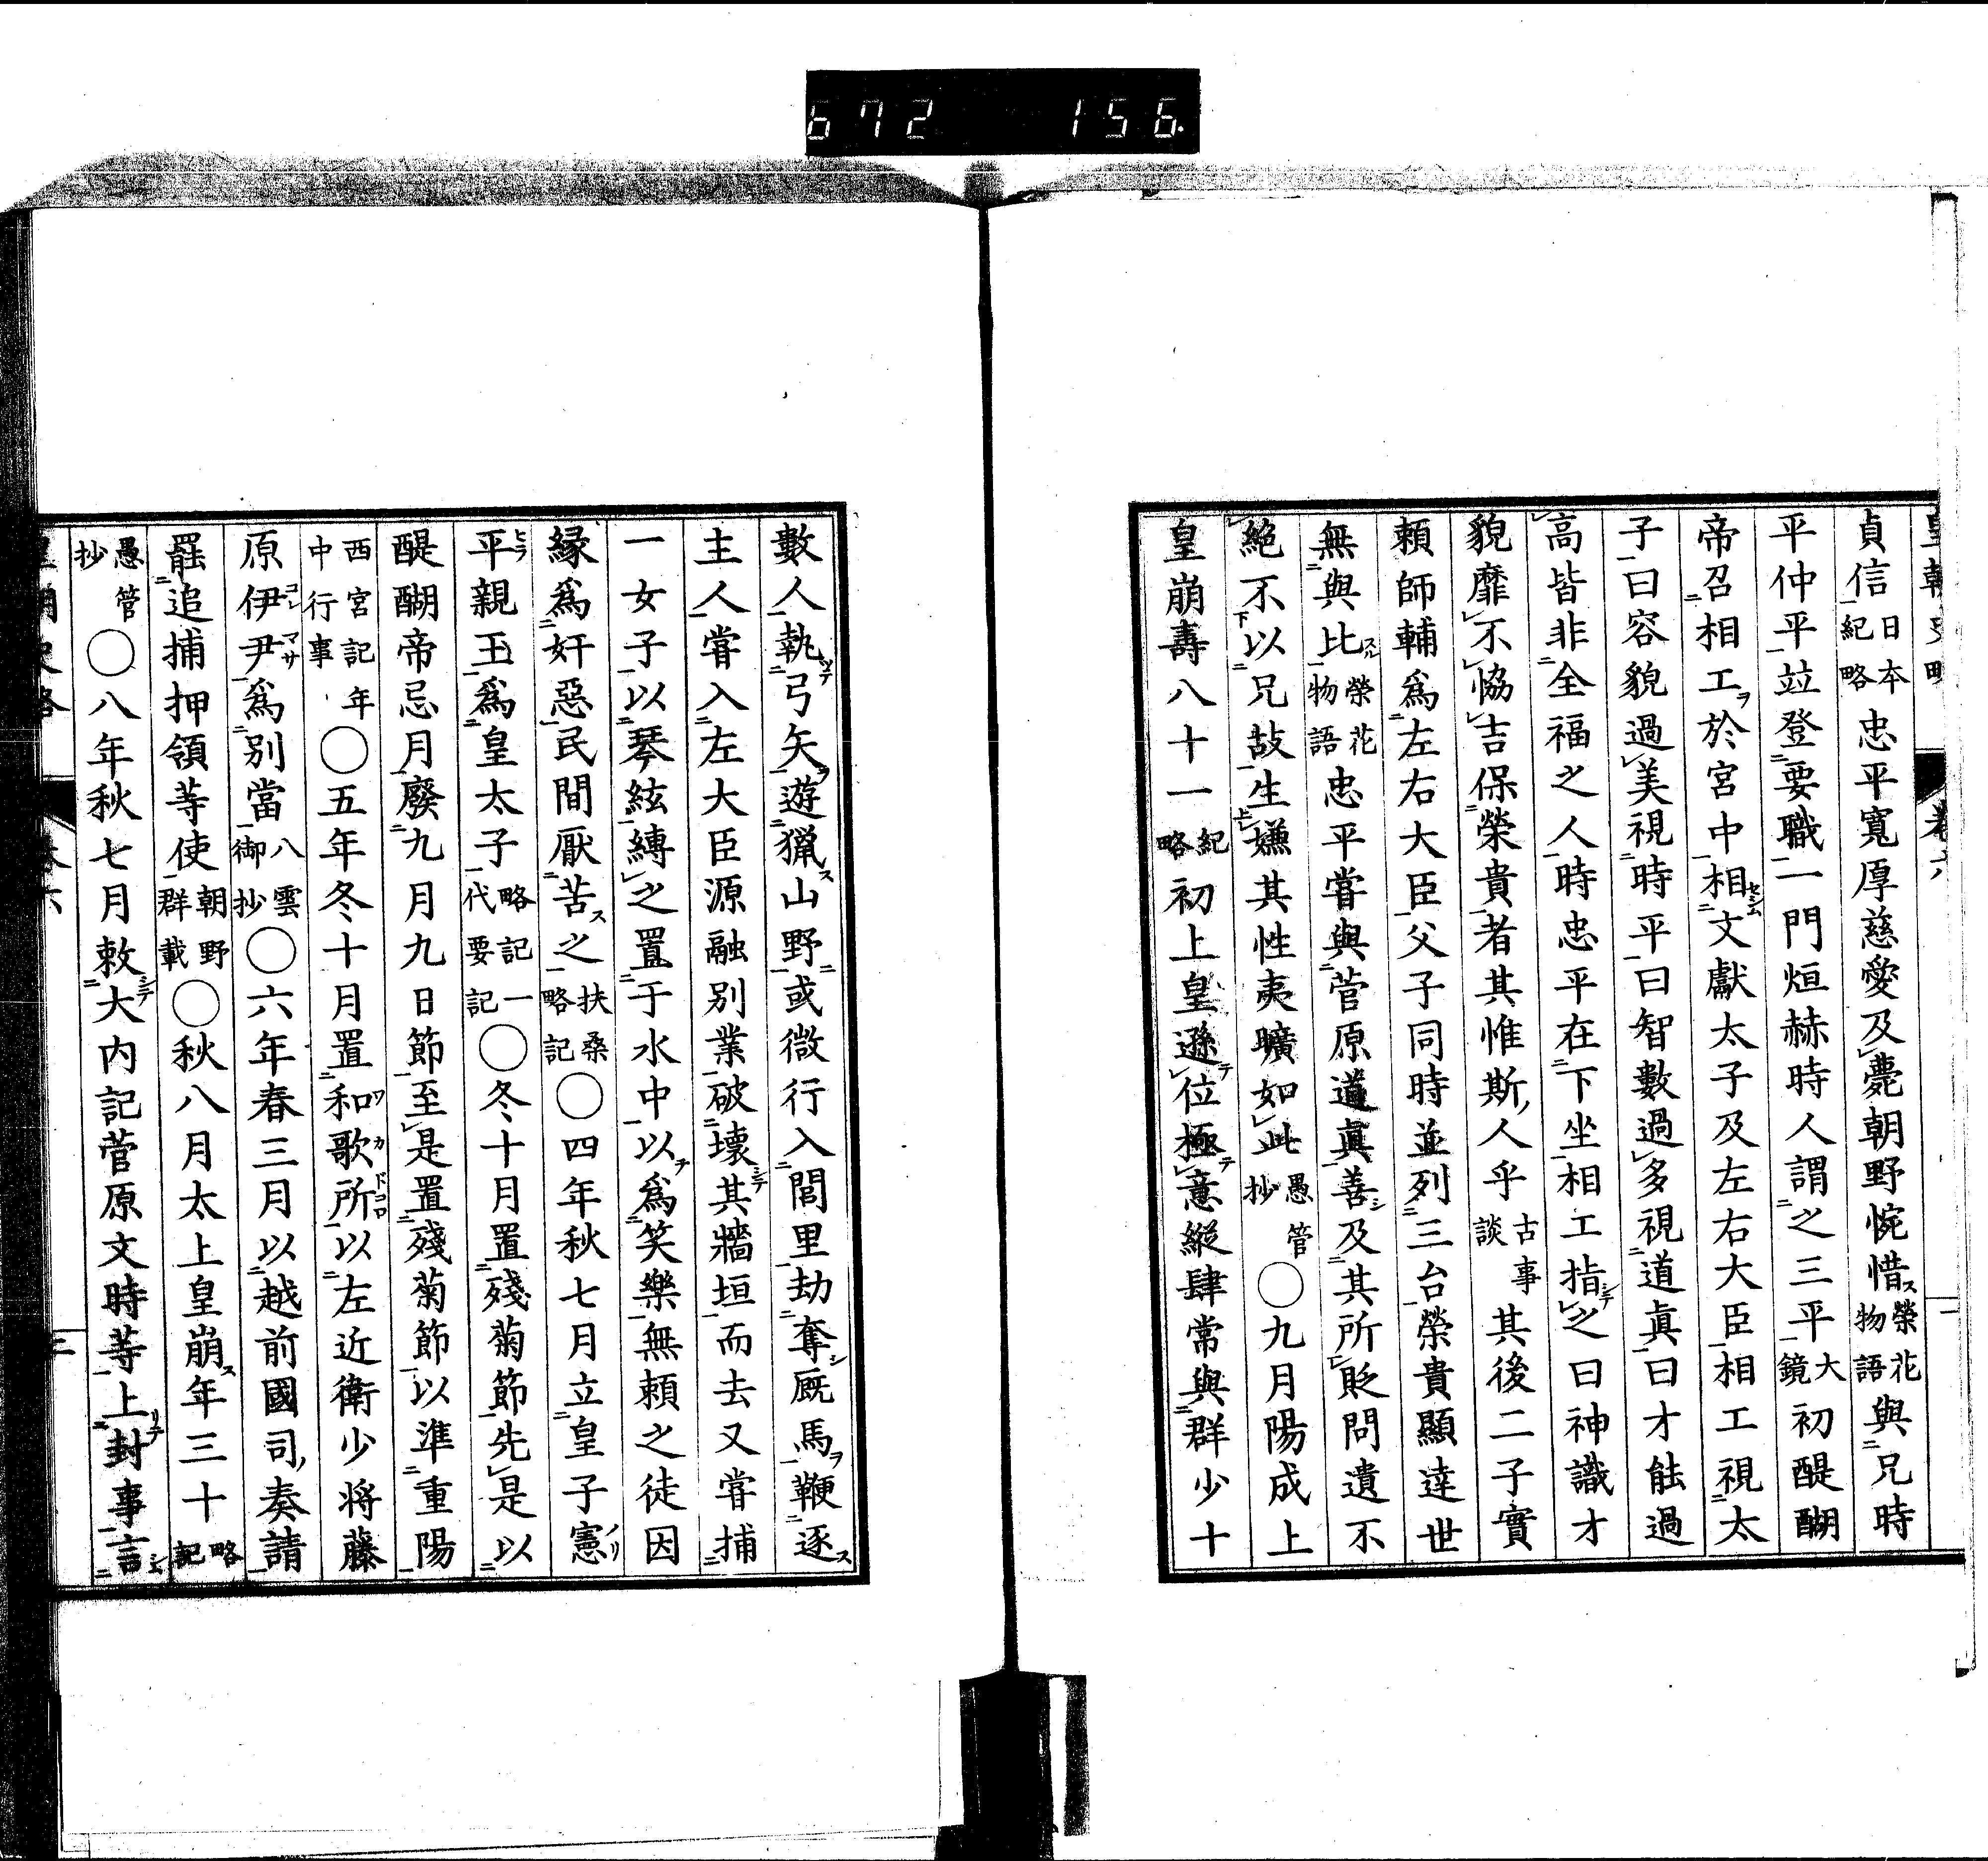 672 156.
皇朝史略 卷六
貞信日本紀略忠平寬厚慈愛及薨朝野惋惜榮花物語與兄時
平仲平竝登要職一門烜赫時人謂之三平大鏡初醍醐
帝召相工於宮中相文獻太子及左右大臣相工視太
子曰容貌過美視時平曰智數過多視道眞曰才能過
高皆非全福之人時忠平在下坐相工指之曰神識才
貌靡不恊吉保榮貴者其惟斯人乎古事談其後二子實
賴師輔爲左右大臣父子同時並列三台榮貴顯達世
無與比榮花物語忠平嘗與菅原道眞善及其所貶問遺不
絕不以兄故生嫌其性夷曠如此愚管抄〇九月陽成上
皇崩壽八十一紀略初上皇遜位極意縱肆常與群少十
數人執弓矢遊獵山野或微行入閭里劫奪厩馬鞭逐
主人嘗入左大臣源融別業破壞其牆垣而去又嘗捕
一女子以琴絃縛之置于水中以爲笑樂無賴之徒因
緣爲奸惡民間厭苦之扶桑略記〇四年秋七月立皇子憲
平親王爲皇太子略記一代要記〇冬十月置殘菊節先是以
醍醐帝忌月廢九月九日節至是置殘菊節以準重陽
西宮記年中行事〇五年冬十月置和歌所以左近衛少將藤
原伊尹爲別當八雲御抄〇六年春三月以越前國司奏請
罷追捕押領等使朝野群載〇秋八月太上皇崩年三十略記
愚管抄〇八年秋七月敕大内記菅原文時等上封事言
皇朝史略 卷六 三